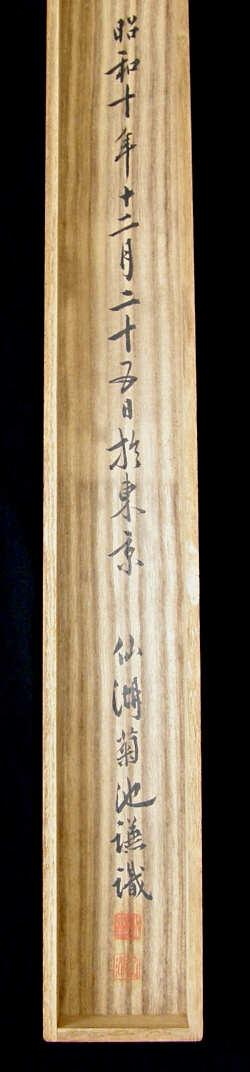 昭和十年十二月二十五日於東京 仙湖菊池謙識